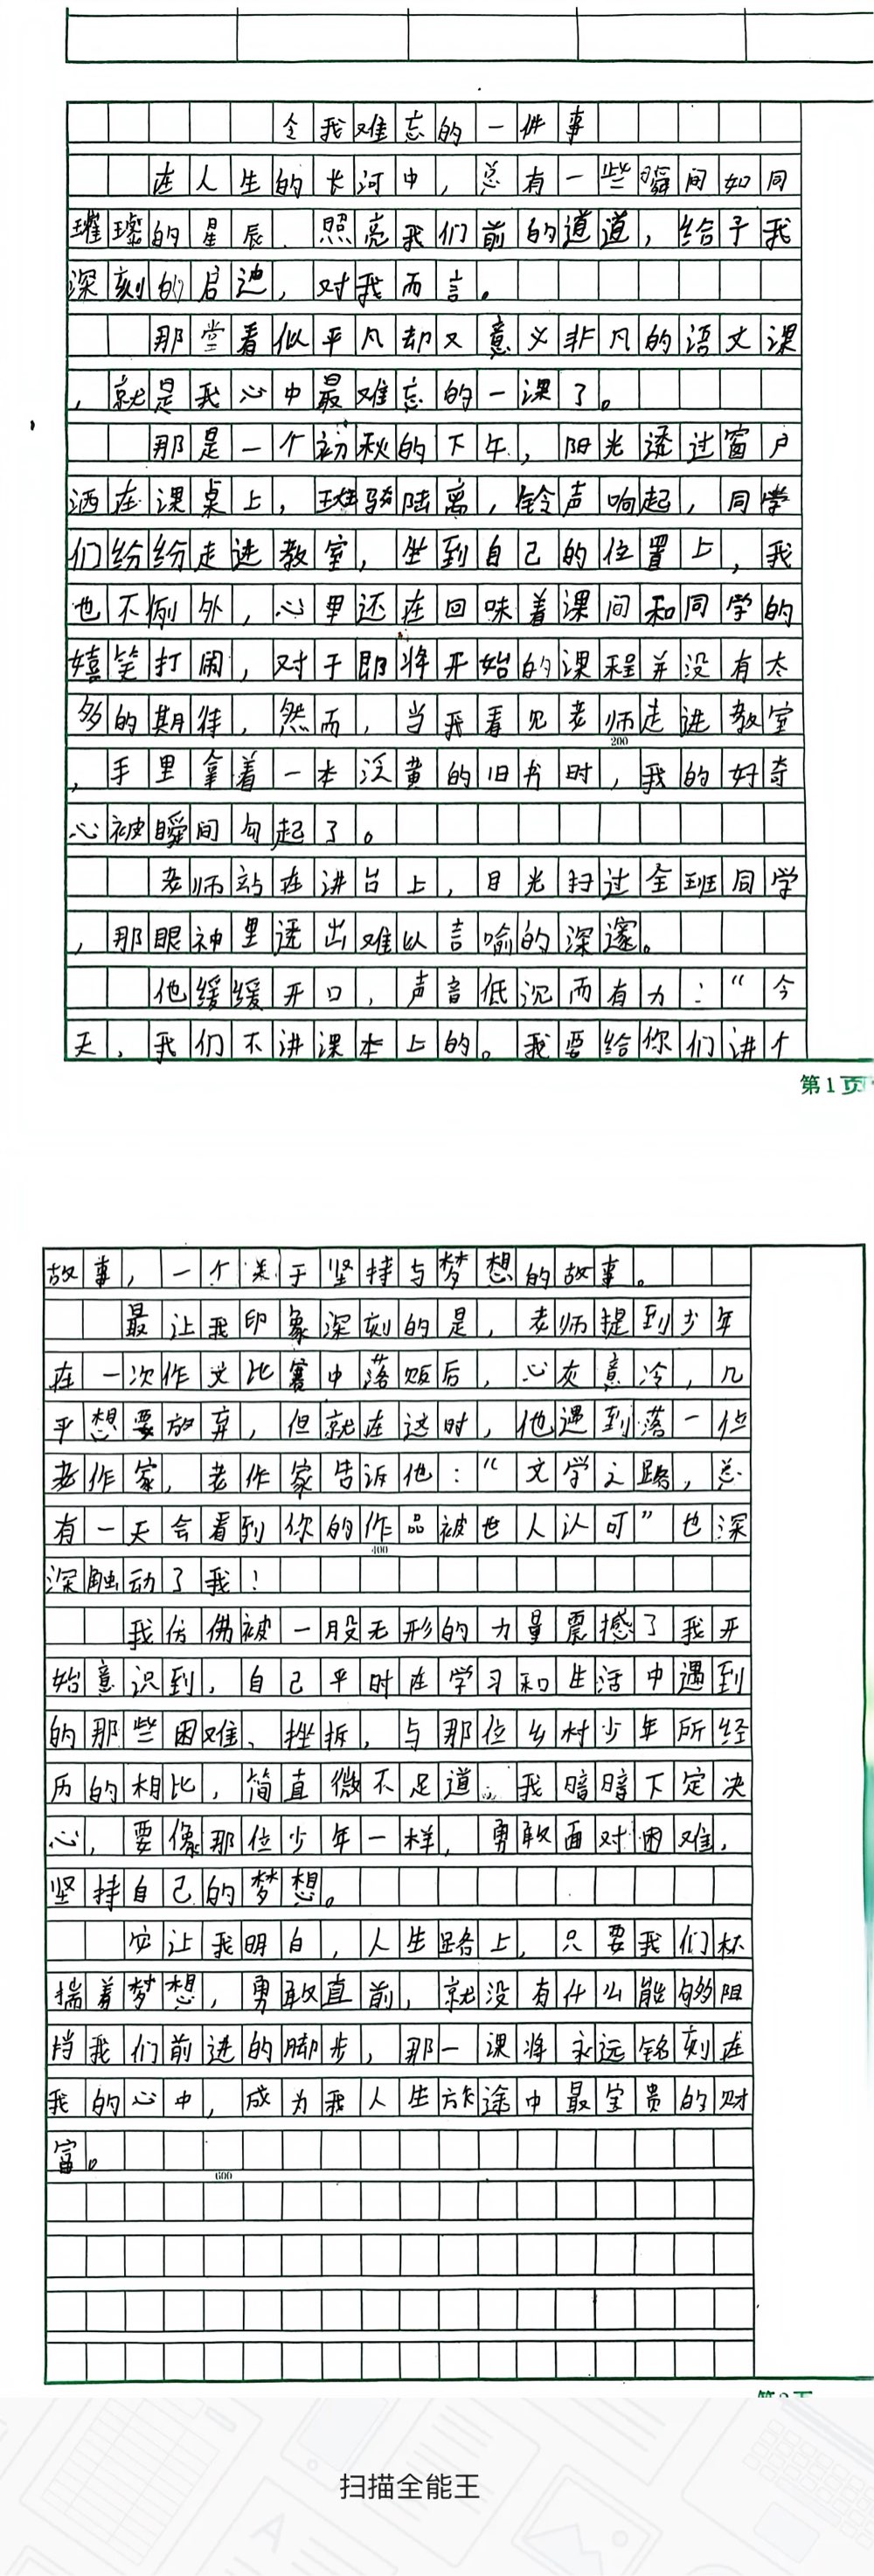 令我难忘的一件事
在人生的长河中，总有一些瞬间如同
璀璨的星辰．照亮我们前的道道，给予我
深刻的启迪，对我而言。
那堂看似平凡却又意义非凡的语文课
，就是我心中最难忘的一课了。
那是一个初秋的下午，阳光透过窗户
洒在课桌上，斑驳陆离，铃声响起，同学
们纷纷走进教室，坐到自己的位置上，我
也不例外，心里还在回味着课间和同学的
嬉笑打闹，对于即将开始的课程并没有太
多的期待，然而，当我看见老师走进教室
200
，手里拿着一本泛黄的旧书时，我的好奇
心被瞬间勾起了。
老师站在讲台上，目光扫过全班同学
，那眼神里透出难以言喻的深邃。
他缓缓开口，声音低沉而有力：“今
天，我们不讲课本上的。我要给你们讲个
第1页
故事，一个关于坚持与梦想的故事。
最让我印象深刻的是，老师提到少年
在一次作文比赛中落败后，心灰意冷，几
乎想要放弃，但就在这时，他遇到落一位
老作家，老作家告诉他：“文学之路，总
有一天会看到你的作品被世人认可”也深
400
深触动了我！
我仿佛被一股无形的力量震撼了我开
始意识到，自己平时在学习和生活中遇到
的那些困难、挫折，与那位乡村少年所经
历的相比，简直微不足道。我暗暗下定决
心，要像那位少年一样，勇敢面对困难，
坚持自己的梦想。
它让我明白，人生路上，只要我们怀
揣着梦想，勇敢直前，就没有什么能够阻
挡我们前进的脚步，那一课将永远铭刻在
我的心中，成为我人生旅途中最宝贵的财
富。
600
扫描全能王